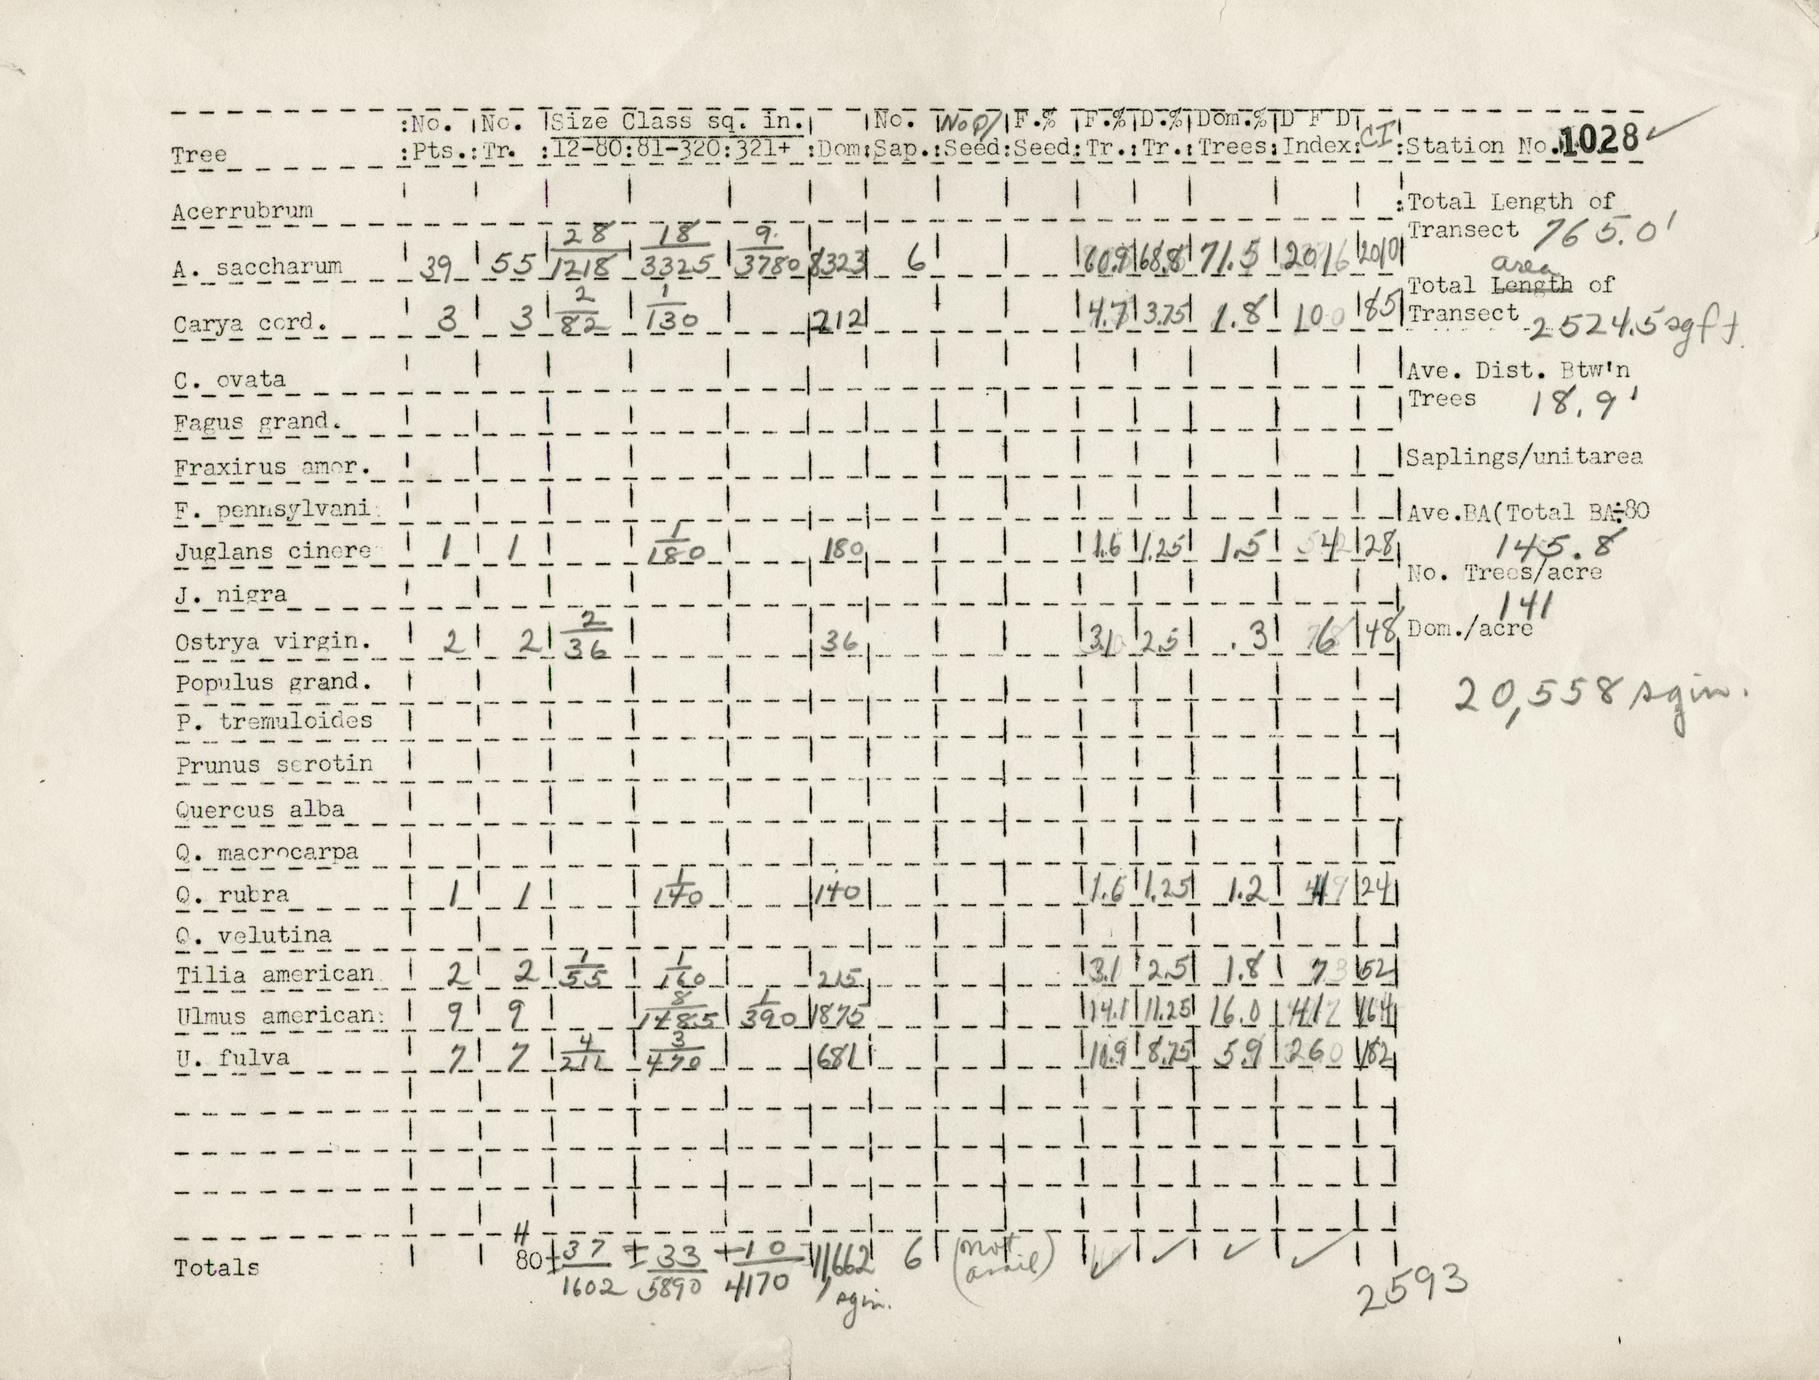 :No. No. Size Class sq. in. No. No of F.% F.% D.% Dom.% D F D CI
Tree :Pts.:Tr. :12-80:81-320:321+ :Dom:Sap.:Seed:Seed:Tr.:Tr.:Trees:Index: :Station No. 1028 ✓
Acerrubrum
:Total Length of
Transect 765.0'
28 18 9
A. saccharum 39 55 1218 3325 3780 8323 6 60.9 68.8 71.5 2016 2010
area
Total Length of
2 1
Carya cord. 3 3 82 130 212 4.7 3.75 1.8 10 185
Transect 2524.5 sq ft.
C. ovata
Ave. Dist. Btw'n
Trees 18.9'
Fagus grand.
Fraxirus amer.
Saplings/unitarea
F. pennsylvani
Ave.BA(Total BA÷80
1
Juglans cinere 1 1 180 180 1.6 1.25 1.5 28
145.8
No. Trees/acre
J. nigra
141
2
Ostrya virgin. 2 2 36 36 3.1 2.5 .3 48
Dom./acre
Populus grand.
20,558 sqin.
P. tremuloides
Prunus serotin
Quercus alba
Q. macrocarpa
1
Q. rubra 1 1 140 140 1.6 1.25 1.2 24
Q. velutina
1 1
Tilia american 2 2 55 160 215 3.1 2.5 1.8 73 52
8 1
Ulmus american: 9 9 1485 390 1875 14.1 11.25 16.0 417 164
4 3
U. fulva 7 7 211 470 681 10.9 8.75 5.9 260 182
Totals 80 37 33 10 11,662 6 (not ✓ ✓ ✓ ✓
1602 5890 4170 sqin. avail)
2593